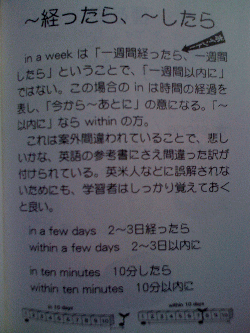 ～経ったら、～したら
in a week は「一週間経ったら、一週間
したら」ということで、「一週間以内に」
ではない。この場合の in は時間の経過を
表し、「今から～あとに」の意になる。「～
以内に」なら within の方。
これは案外間違われていることで、悲し
いかな、英語の参考書にさえ間違った訳が
付けられている。英米人などに誤解されな
いためにも、学習者はしっかり覚えておく
と良い。
in a few days 2～3日経ったら
within a few days 2～3日以内に
in ten minutes 10分したら
within ten minutes 10分以内に
in 10 days
within 10 days